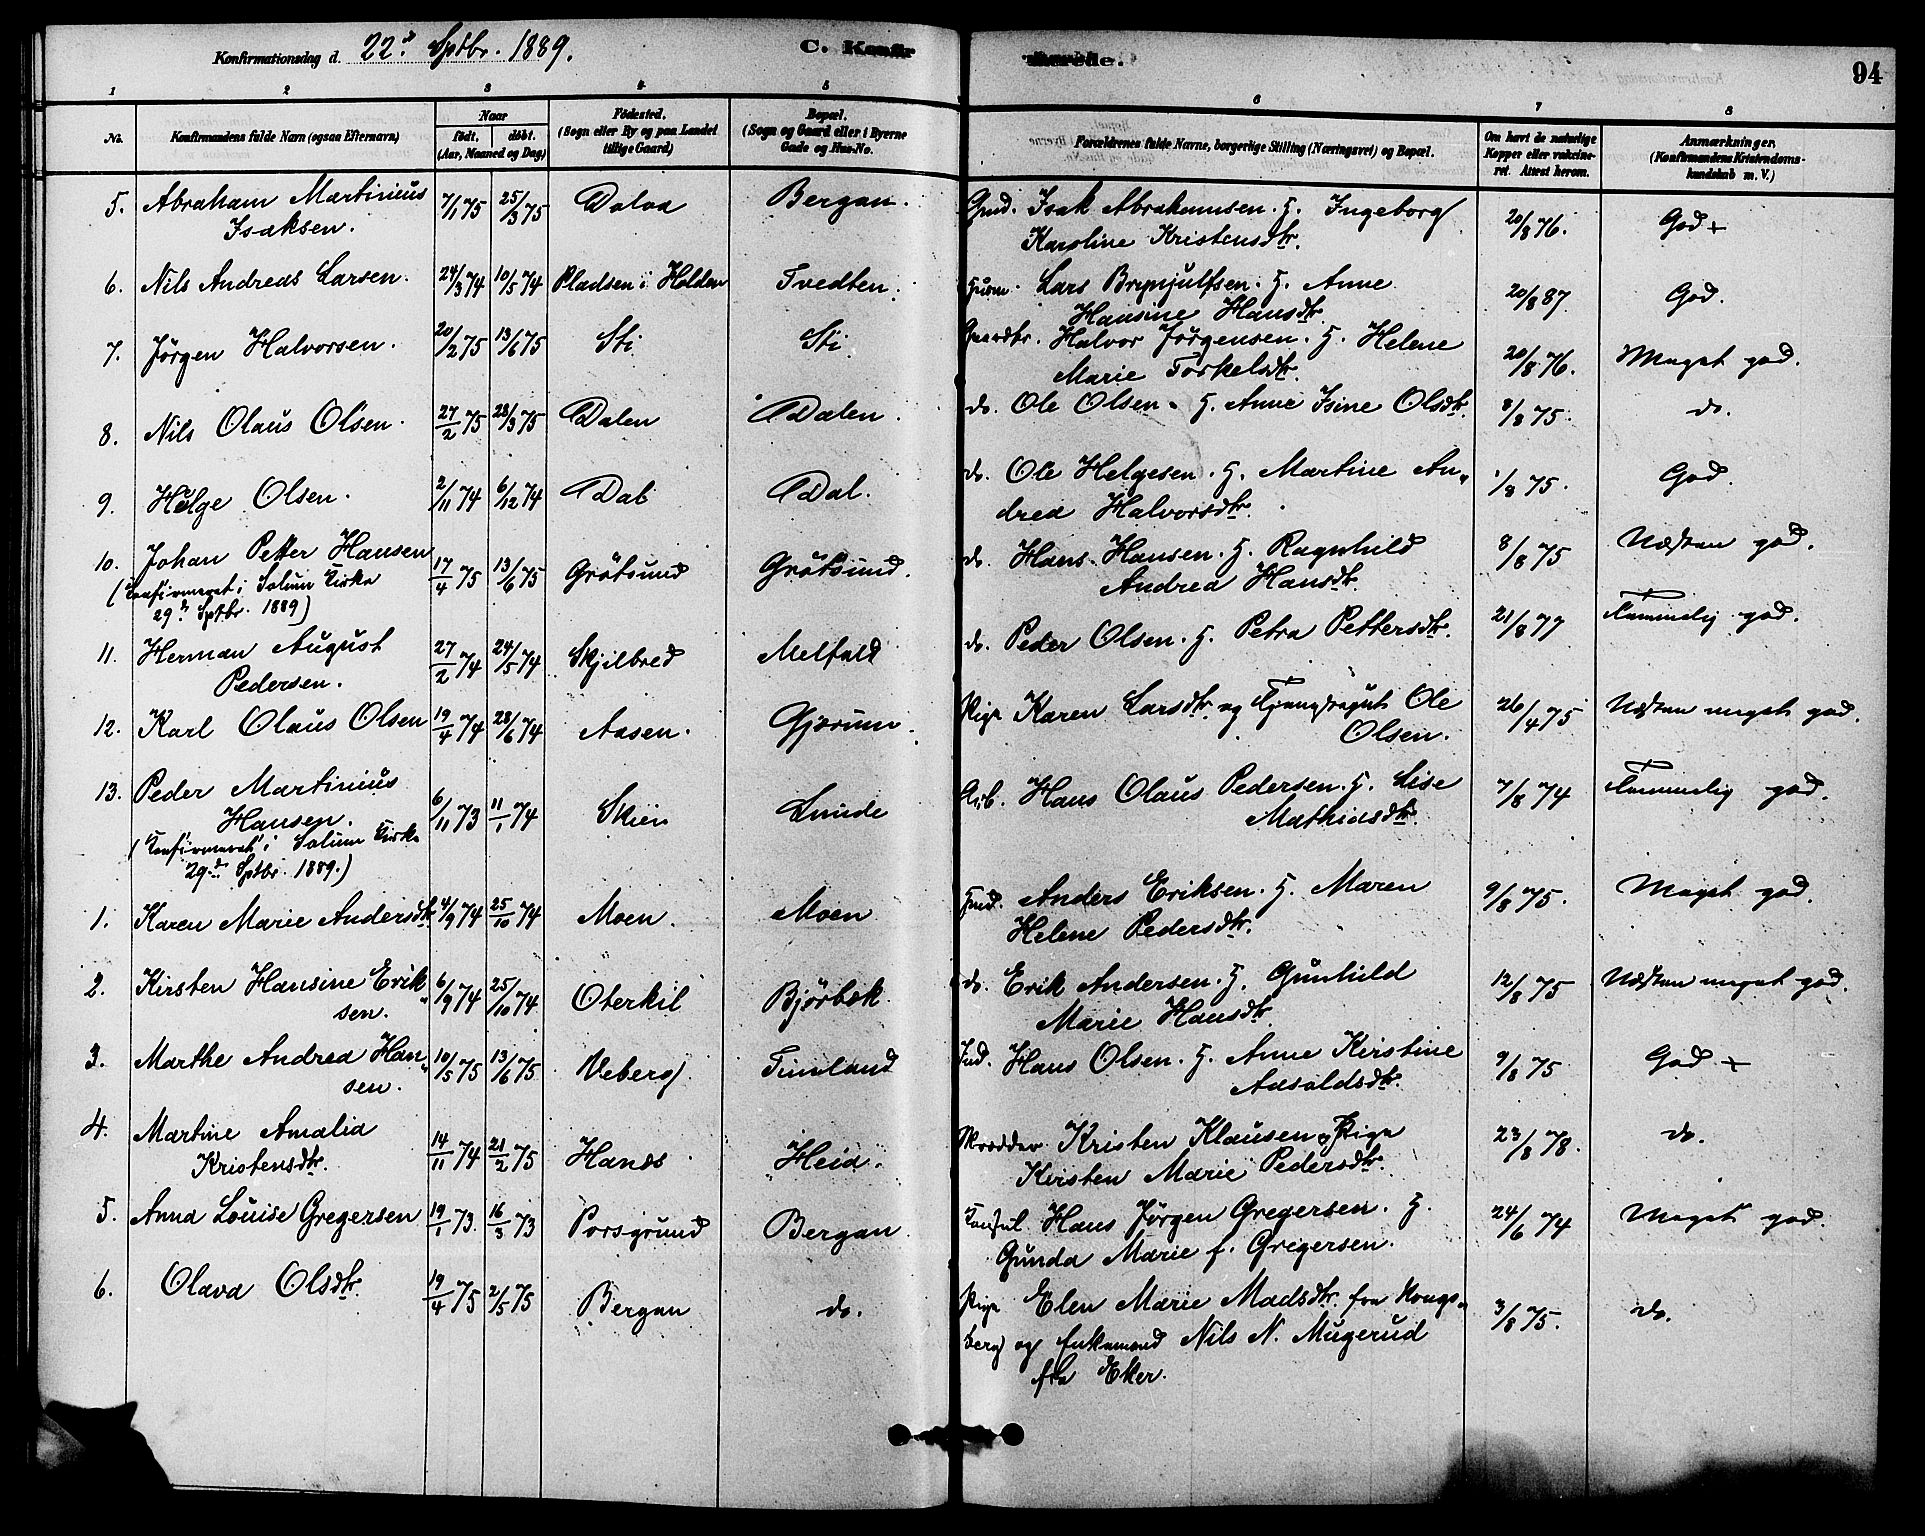 Konfirmationsdag d. 22.d Sptbr. 1889.
C. Konfirmerede.
94
1 2 3 4 5 6 7 8
No.
Konfirmandens fulde Navn (ogsaa Efternavn)
Naar
født. døbt.
(Aar, Maaned og Dag)
Fødested.
(Sogn eller By og paa Landet
tillige Gaard)
Bopæl.
(Sogn og Gaard eller i Byerne
Gade og Hus-No.
Forældrenes fulde Navne, borgerlige Stilling (Næringsvei) og Bopæl.
Om havt de naturlige
Kopper eller vakcine-
ret. Attest herom.
Anmærkninger.
(Konfirmandens Kristendoms-
kundskab m. V.)
5. Abraham Martinius 7/1 75 25/3 75 Dalaa Bergan. Gmd. Isak Abrahamsen. H. Ingeborg 20/8 76. God +
Isaksen. Karoline Kristensdtr.
6. Nils Andreas Larsen. 24/3 74 10/5 74 Pladsen i Holden Tvedten. Husm. Lars Brynjulfsen. H. Anne 20/8 87 God.
Hansine Hansdtr.
7. Jørgen Halvorsen. 20/2 75 13/6 75 Sti Sti. Gaardbr. Halvor Jørgensen. H. Helene 20/8 76. Meget god.
Marie Torkelsdtr.
8. Nils Olaus Olsen. 27/2 75 28/3 75 Dalen Dalen. do. Ole Olsen. H. Anne Isine Olsdtr. 8/8 75. do.
9. Helge Olsen. 2/11 74 6/12 74 Dal Dal. do. Ole Helgesen. H. Martine An- 1/8 75. God.
drea Halvorsdtr.
10. Johan Petter Hansen 17/4 75 13/6 75 Grøtsund Grøtsund. do. Hans Hansen. H. Ragnhild 8/8 75 Næsten god.
(Konfirmeret i Solum Kirke Andrea Hansdtr.
29.d Sptbr. 1889)
11. Herman August 27/2 74 24/5 74 Skjilbred Melfald do. Peder Olsen. H. Petra Pettersdtr. 21/8 77 Temmelig god.
Pedersen.
12. Karl Olaus Olsen 19/4 74 28/6 74 Aasen. Gjerum. Pige Karen Larsdtr. og Tjenestegut Ole 26/4 75 Næsten meget god.
Olsen.
13. Peder Martinius 6/11 73 11/1 74 Skien Lunde Arb. Hans Olaus Pedersen. H. Lise 7/8 74 Temmelig god.
Hansen. Mathiasdtr.
(Konfirmeret i Solum Kirke
29.d Sptbr. 1889.)
1. Karen Marie Andersdtr. 4/9 74 25/10 74 Moen. Moen Husmd. Anders Eriksen. H. Maren 9/8 75. Meget god.
Helene Pedersdtr.
2. Kirsten Hansine Erik- 6/9 74 25/10 74 Oterkil Bjørbæk. do. Erik Andersen. H. Gunhild 12/8 75 Næsten meget god.
sen. Marie Hansdtr.
3. Marthe Andrea Han- 10/5 75 13/6 75 Veberg Timland Ind. Hans Olsen. H. Anne Kirstine 9/8 75 God +
sen. Aasoldsdtr.
4. Martine Amalia 14/11 74 21/2 75 Hanes Heia. Skrædder Kristen Klausen og Pige 23/8 78. do.
Kristensdtr. Kirsten Marie Pedersdtr.
5. Anna Louise Gregersen 19/1 73. 16/3 73 Porsgrund Bergan Konsul Hans Jørgen Gregersen. H. 24/6 74 Meget god.
Gunda Marie f. Gregersen.
6. Olava Olsdtr. 19/4 75 2/5 75 Bergan do. Pige Elen Marie Madsdtr. fra Kongs- 3/8 75. do.
berg og Enkemand Nils N. Mugerud
fra Eker.